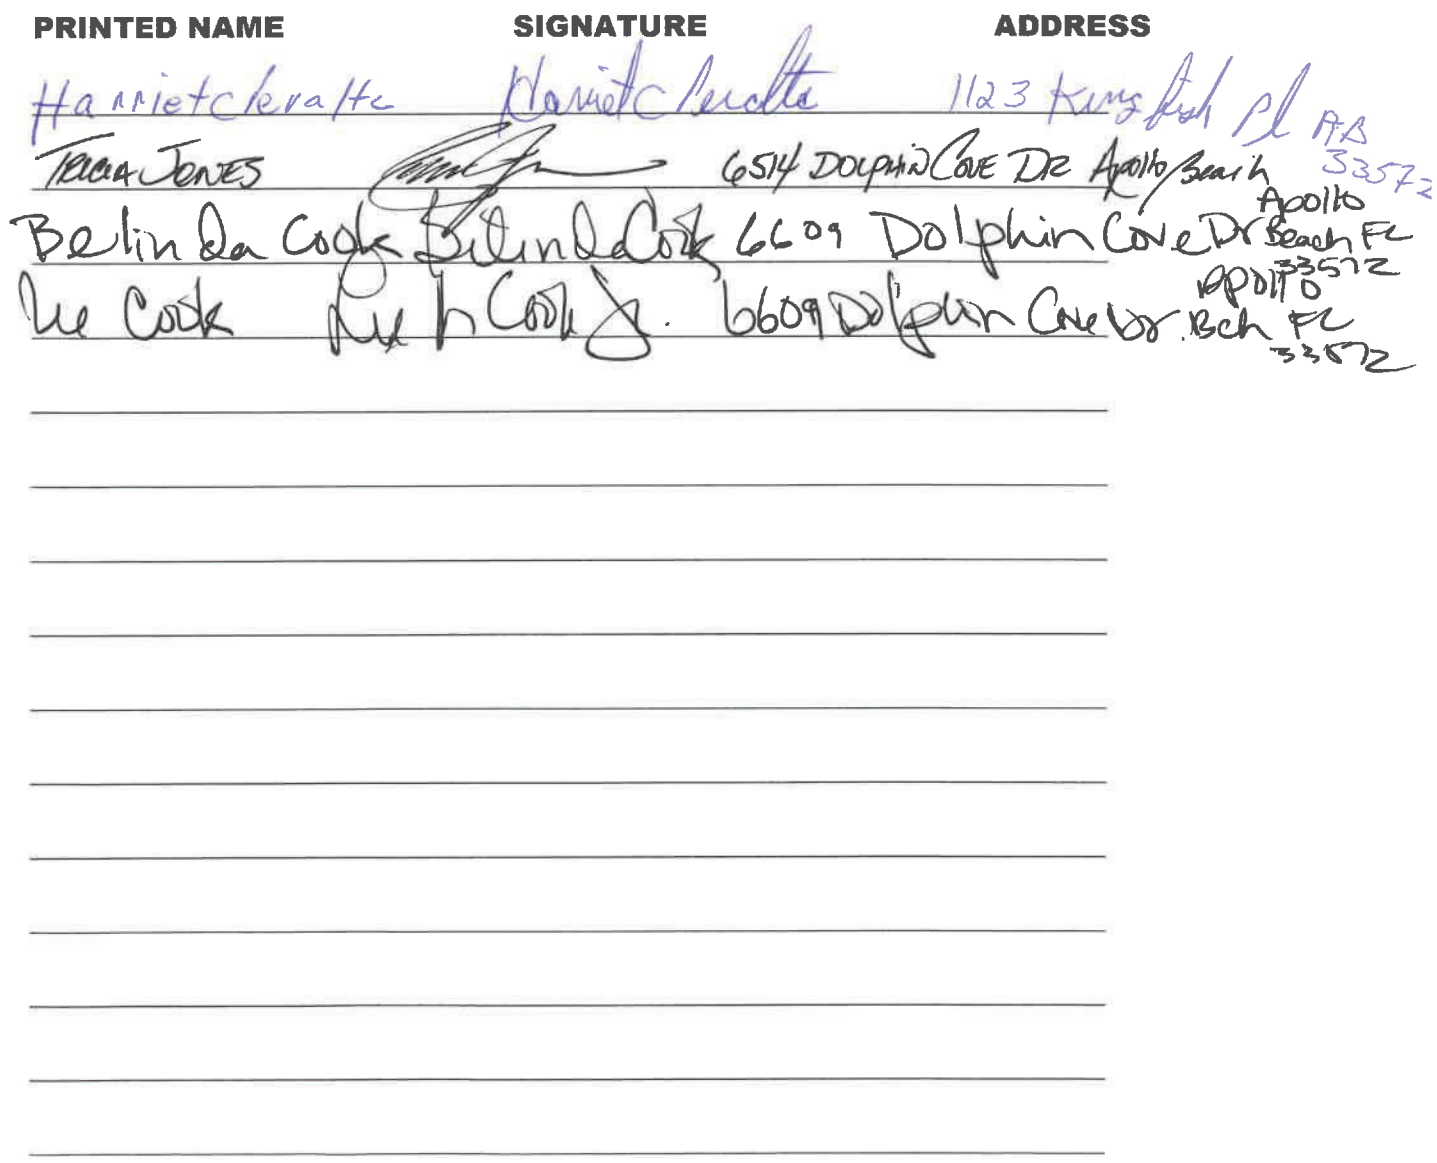 PRINTED NAME SIGNATURE ADDRESS
Harriet C Peralta Harriet C Peralta 1123 Kingfish Pl AB
33572
Tricia Jones 6514 Dolphin Cove Dr Apollo Beach
Belinda Cook Belinda Cook 6609 Dolphin Cove Dr Apollo Beach FL
33572
Lee Cook Lee Cook Jr. 6609 Dolphin Cove Dr. Apollo Bch FL
33572